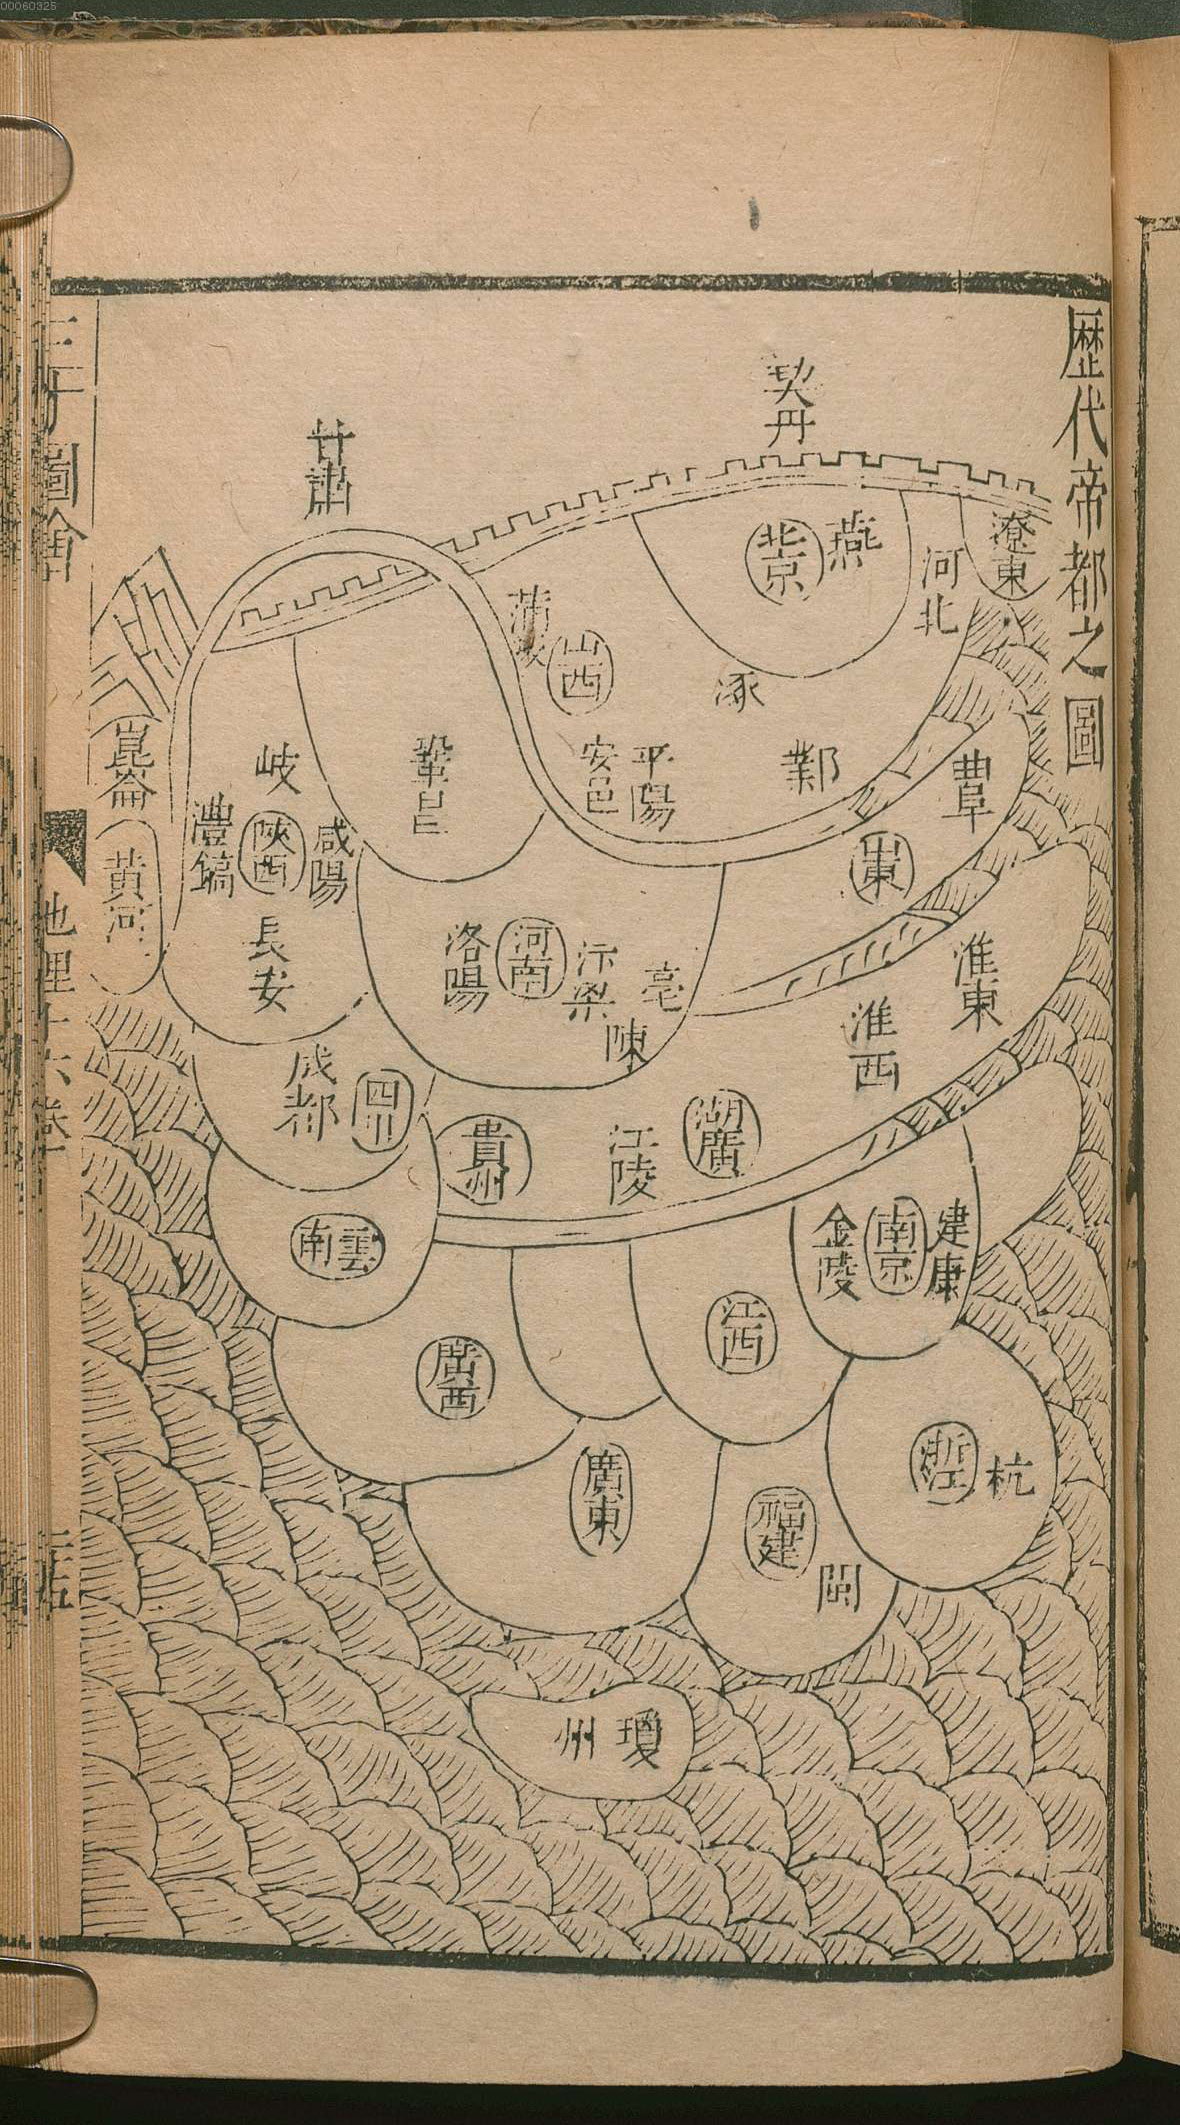 00060325
歷代帝都之圖
契丹
甘肅
遼東
河北
燕
北京
涿
鄴
曲阜
山東
山西
平陽
安邑
鞏昌
岐
咸陽
陝西
灃鎬
長安
崑崙
黃河
洛陽
河南
汴梁
亳
陳
淮東
淮西
湖廣
江陵
貴州
四川
成都
雲南
建康
南京
金陵
江西
廣西
廣東
浙江
杭
福建
閩
瓊州
三才圖會
地理十六卷